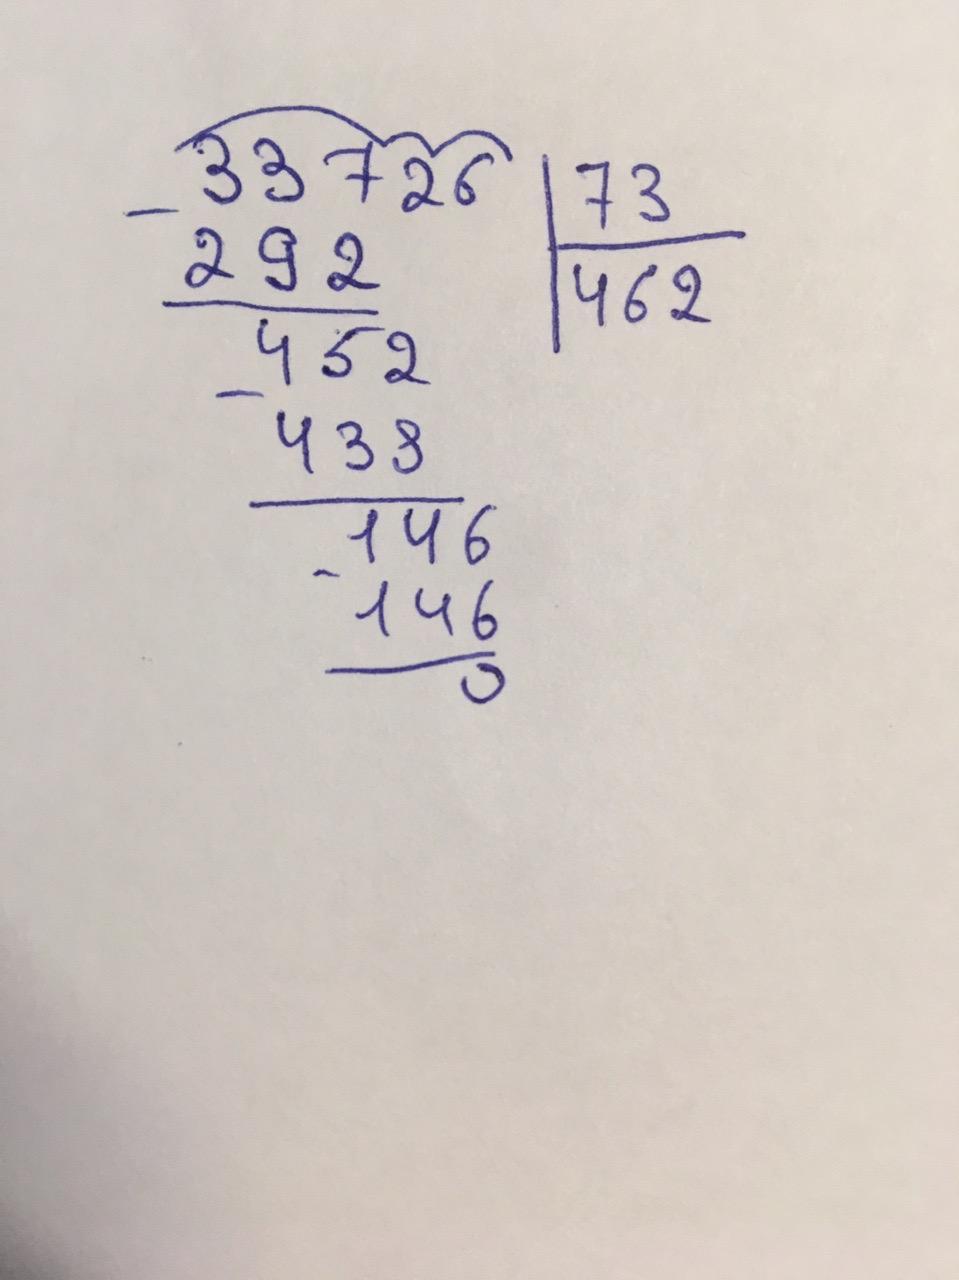 33726 | 73
- 292 | 462
452
- 438
146
- 146
0